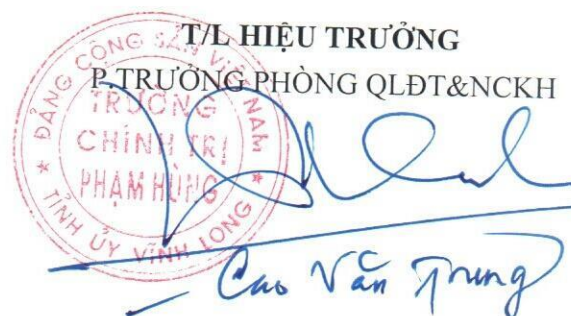 T/L HIỆU TRƯỞNG
P.TRƯỞNG PHÒNG QLĐT&NCKH
ĐẢNG CỘNG SẢN VIỆT NAM
TRƯỜNG
CHÍNH TRỊ
PHẠM HÙNG
TỈNH ỦY VĨNH LONG
Cao Văn Trung